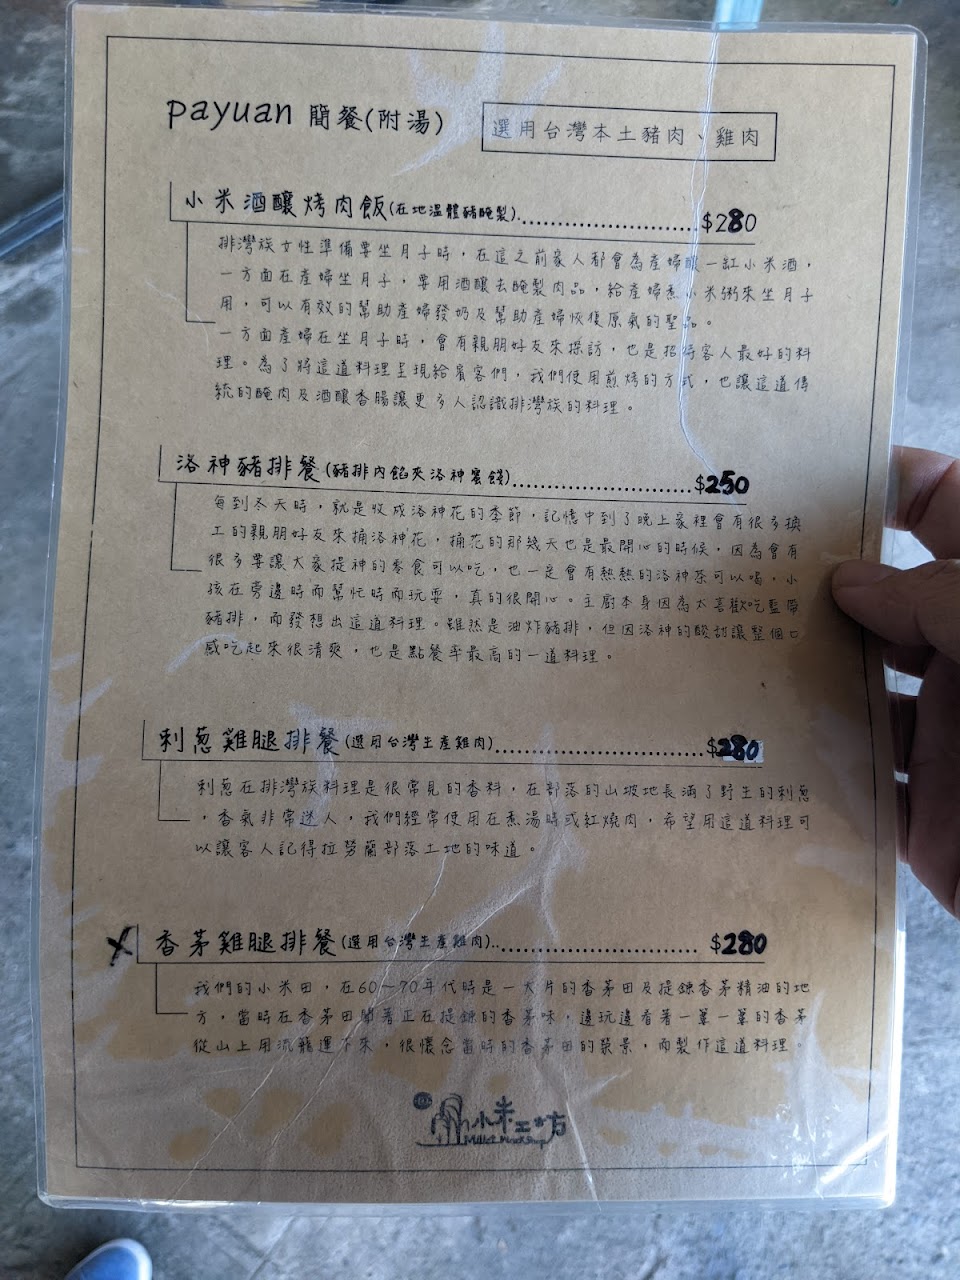 payuan 簡餐(附湯)
選用台灣本土豬肉、雞肉
小米酒釀烤肉飯(在地溫體豬醃製)..............................$280
排灣族女性準備要坐月子時，在這之前家人都會為產婦釀一缸小米酒，
一方面在產婦坐月子，要用酒釀去醃製肉品，給產婦煮小米粥來坐月子
用，可以有效的幫助產婦發奶及幫助產婦恢復原氣的聖品。
一方面產婦在坐月子時，會有親朋好友來探訪，也是招待客人最好的料
理。為了將這道料理呈現給賓客們，我們使用煎烤的方式，也讓這道傳
統的醃肉及酒釀香腸讓更多人認識排灣族的料理。
洛神豬排餐(豬排內餡夾洛神蜜餞)..............................$250
每到冬天時，就是收成洛神花的季節，記憶中到了晚上家裡會有很多換
工的親朋好友來捅洛神花，捅花的那幾天也是最開心的時候，因為會有
很多要讓大家提神的零食可以吃，也一定會有熱熱的洛神茶可以喝，小
孩在旁邊時而幫忙時而玩耍，真的很開心。主廚本身因為太喜歡吃藍帶
豬排，而發想出這道料理。雖然是油炸豬排，但因洛神的酸甜讓整個口
感吃起來很清爽，也是點餐率最高的一道料理。
刺蔥雞腿排餐(選用台灣生產雞肉)..............................$280
刺蔥在排灣族料理是很常見的香料，在部落的山坡地長滿了野生的刺蔥
，香氣非常迷人，我們經常使用在煮湯時或紅燒肉，希望用這道料理可
以讓客人記得拉勞蘭部落土地的味道。
X 香茅雞腿排餐(選用台灣生產雞肉)..............................$280
我們的小米田，在60~70年代時是一大片的香茅田及提鍊香茅精油的地
方，當時在香茅田聞著正在提鍊的香茅味，邊玩邊看著一簍一簍的香茅
從山上用流籠運下來，很懷念當時的香茅田的榮景，而製作這道料理。
小米工坊
Millet Workshop